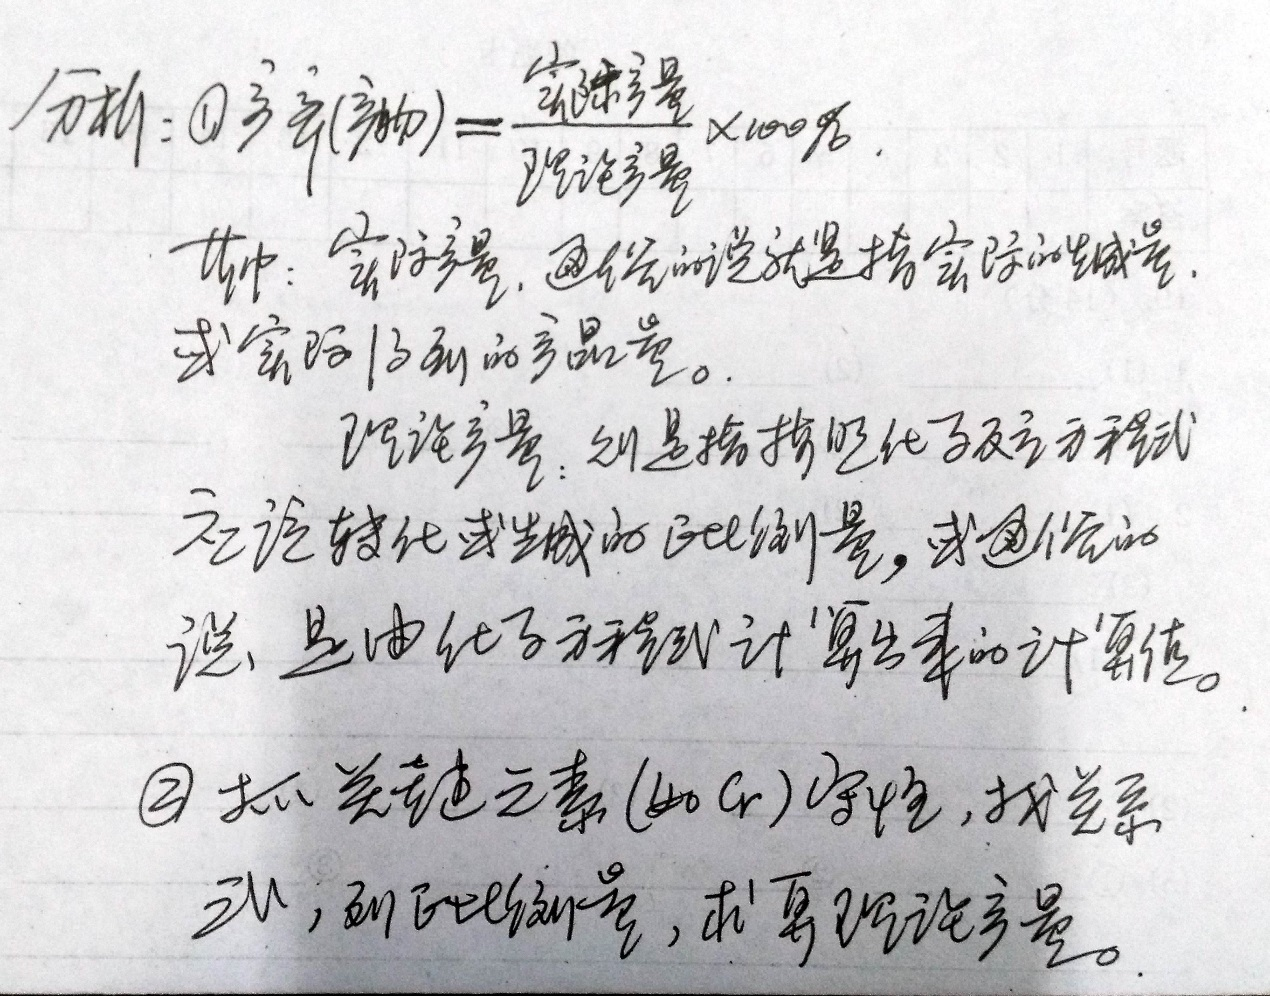 分析：①产率(产物)=实际产量/理论产量×100%.
其中：实际产量，通俗的说就是指实际的生成量，
或实际得到的产品量。
理论产量：则是指按照化学反应方程式
应该转化或生成的正比例量，或通俗的
说，是由化学方程式计算出来的计算值。
②抓关键元素(如Cr)守恒，找关系
式，列正比例量，求算理论产量。